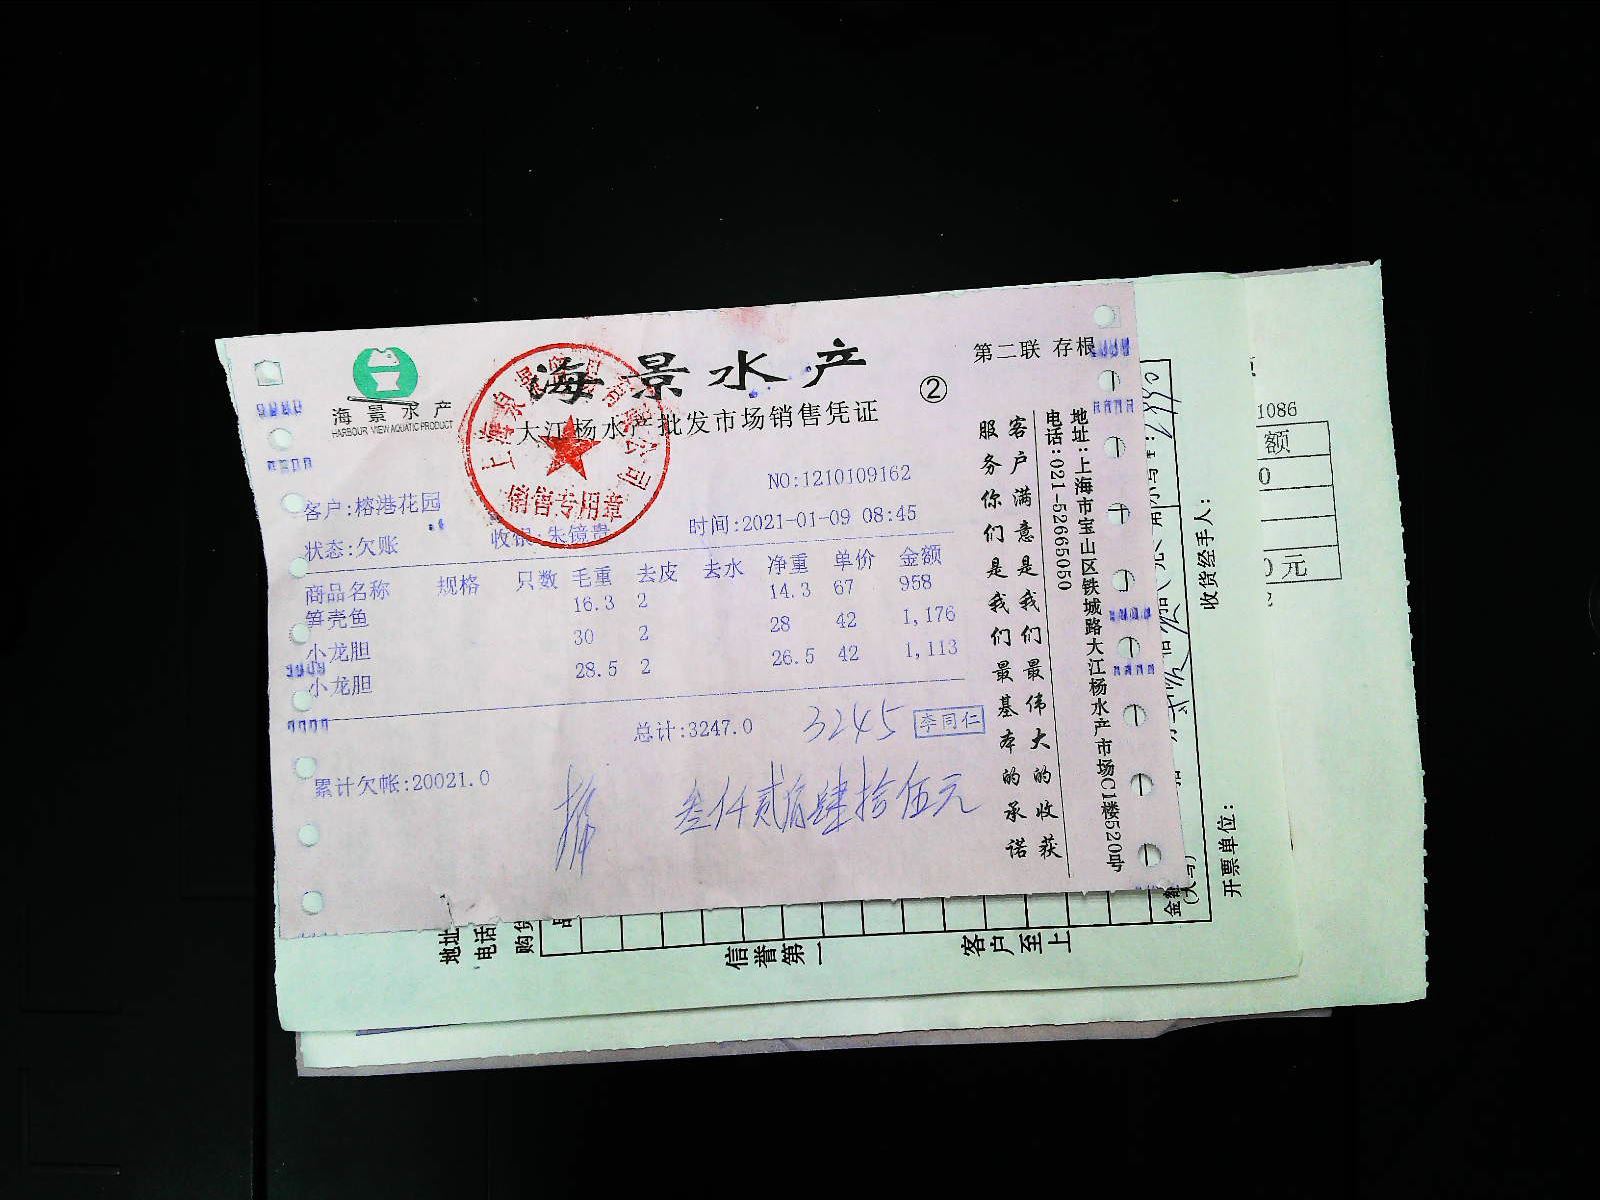 海景水产
HARBOUR VIEW AQUATIC PRODUCT
海景水产
第二联 存根
②
大江杨水产批发市场销售凭证
NO:1210109162
客户:榕港花园
时间:2021-01-09 08:45
状态:欠账
收银:朱镜贵
商品名称 规格 只数 毛重 去皮 去水 净重 单价 金额
笋壳鱼 16.3 2 14.3 67 958
小龙胆 30 2 28 42 1,176
小龙胆 28.5 2 26.5 42 1,113
总计:3247.0 3245 李同仁
累计欠帐:20021.0
叁仟贰佰肆拾伍元
销售专用章
客户满意是我们最伟大的收获
服务你们是我们最基本的承诺
地址:上海市宝山区铁城路大江杨水产市场C1楼520号
电话:021-52665050
收货经手人:
开票单位:
金额
(大写)
1086
额
0
0元
地址
电话
购货
品
信誉第一
客户至上